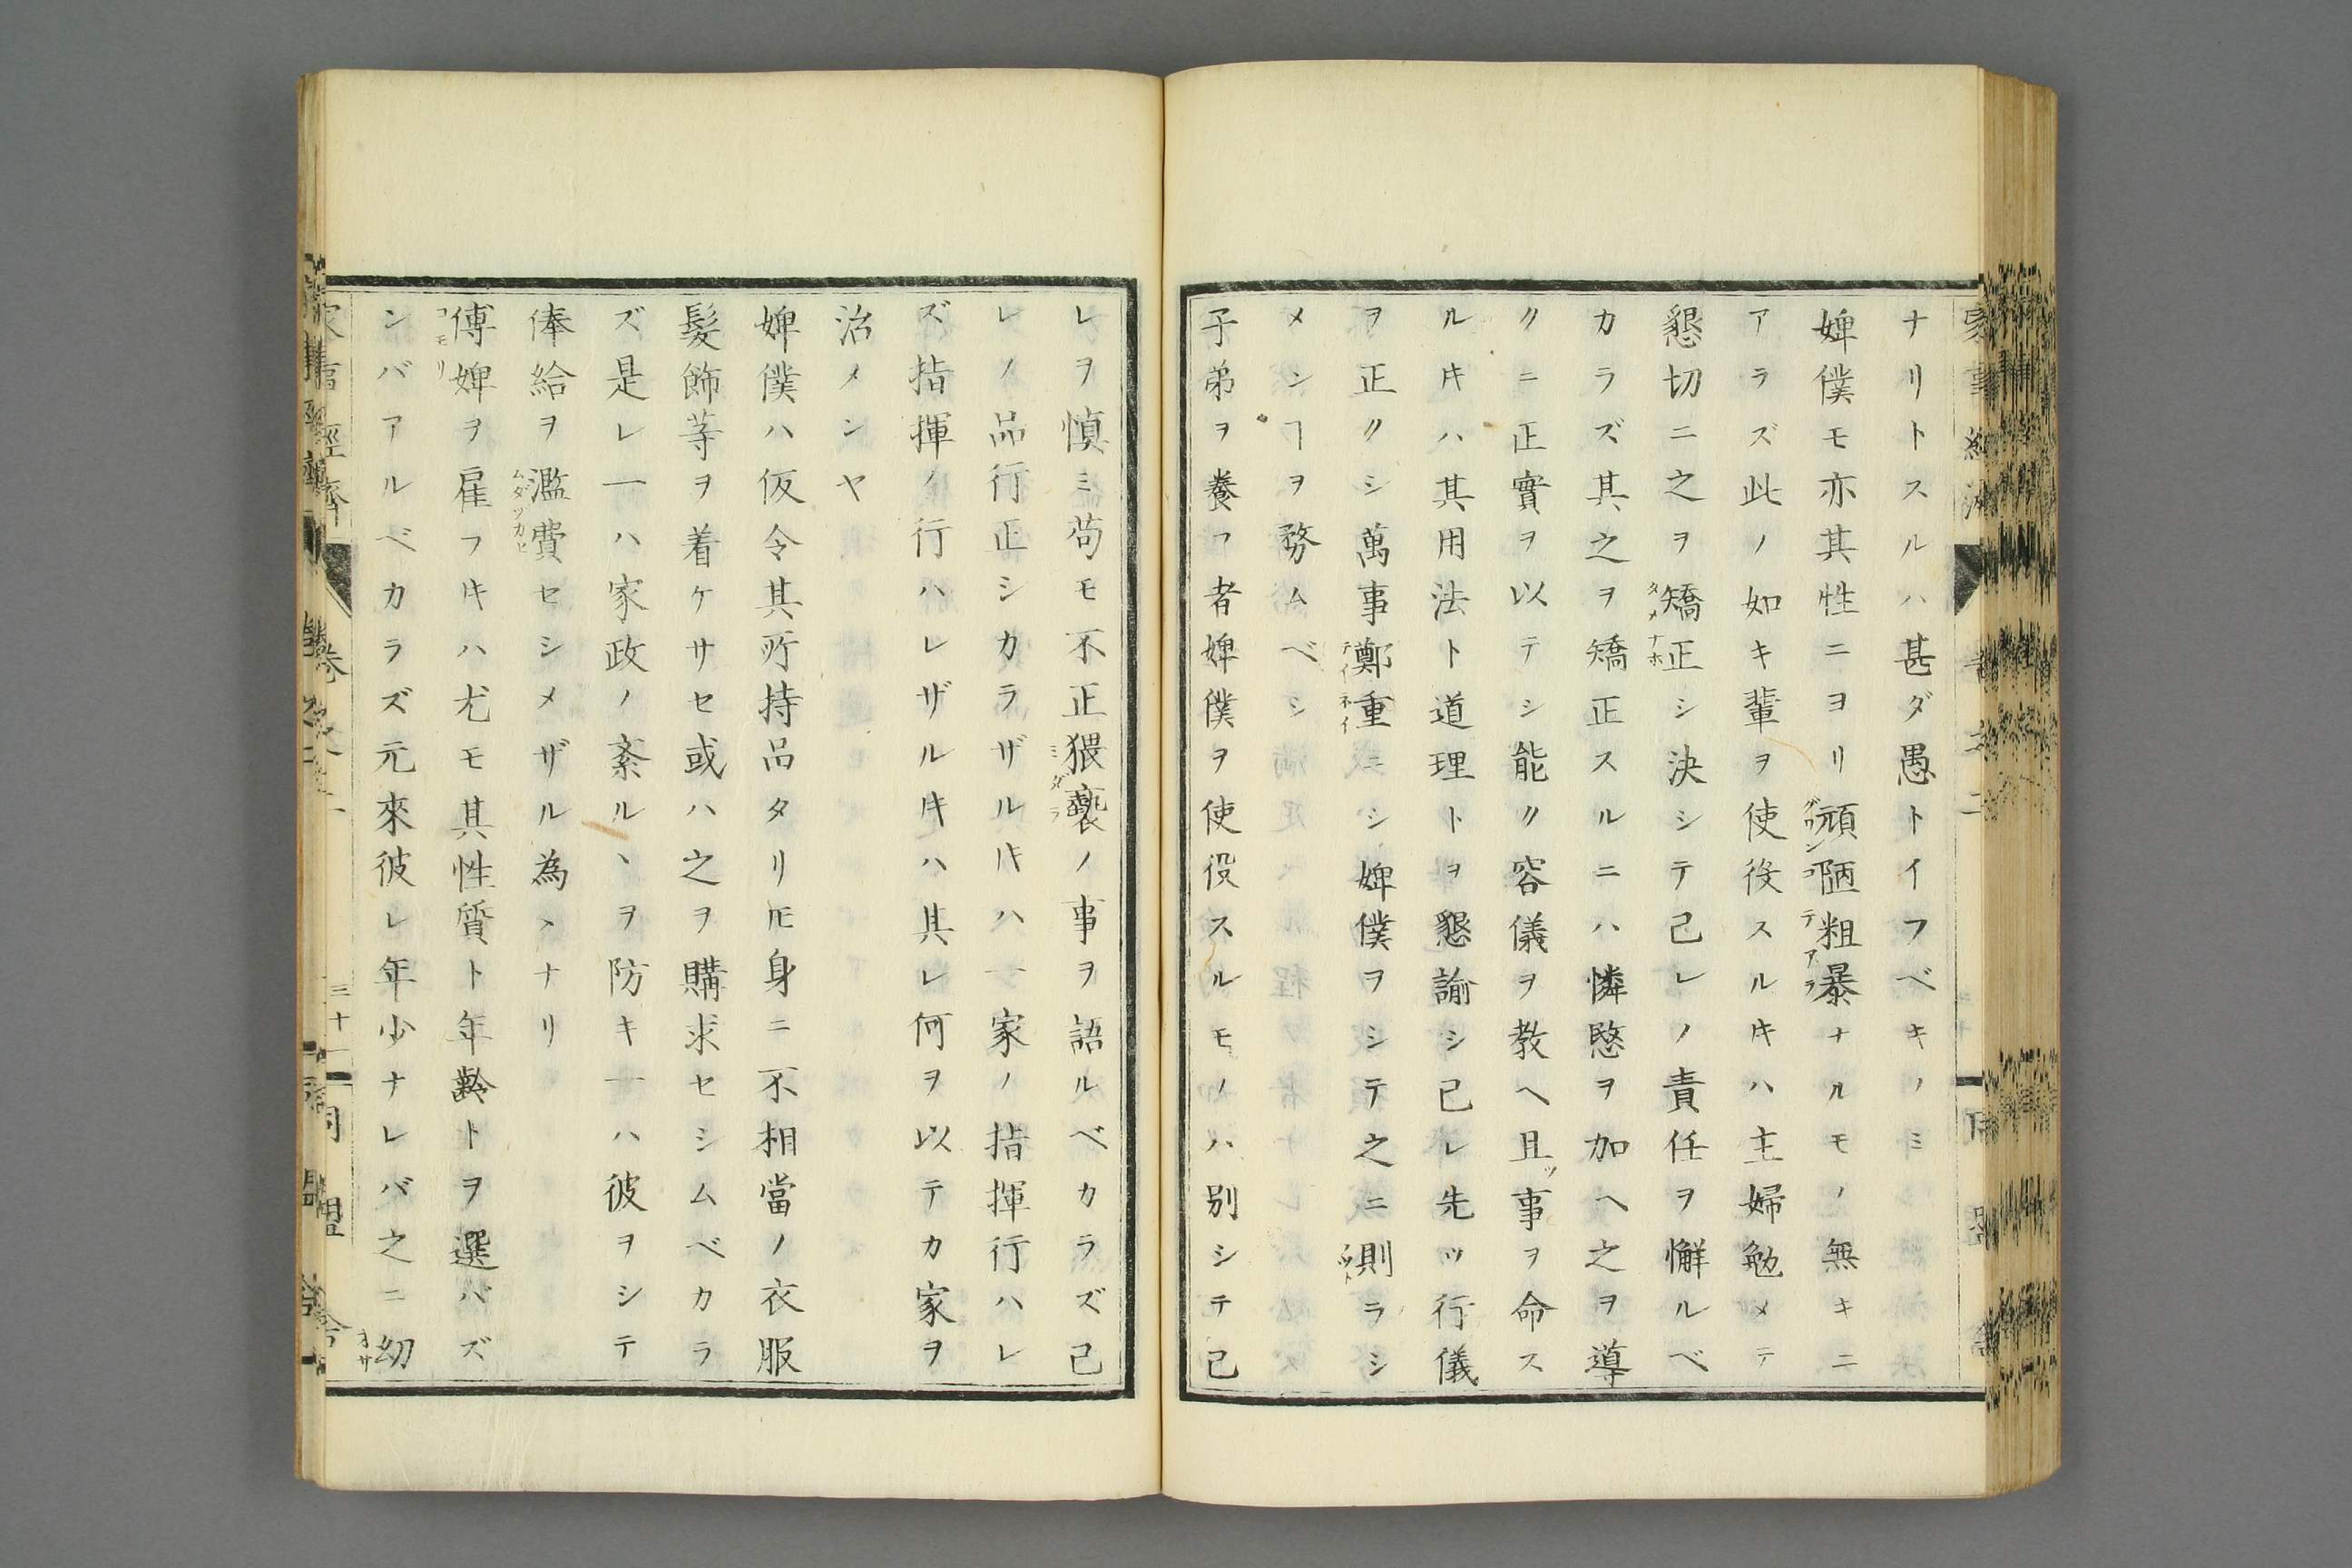 ナリトスルハ甚ダ愚トイフベキノミ
婢僕モ亦其性ニヨリ頑陋粗暴ナルモノ無キニ
アラズ此ノ如キ輩ヲ使役スルキハ主婦勉メテ
懇切ニ之ヲ矯正シ決シテ己レノ責任ヲ懈ルベ
カラズ其之ヲ矯正スルニハ憐愍ヲ加ヘ之ヲ導
クニ正實ヲ以テシ能ク容儀ヲ教ヘ且ツ事ヲ命ス
ルキハ其用法ト道理トヲ懇諭シ己レ先ツ行儀
ヲ正クシ萬事鄭重ニシ婢僕ヲシテ之ニ則ラシ
メンヿヲ務ムベシ
子弟ヲ養フ者婢僕ヲ使役スルモノハ别シテ己
レヲ慎ミ苟モ不正猥褻ノ事ヲ語ルベカラズ己
レノ品行正シカラザルキハ一家ノ指揮行ハレ
ズ指揮ノ行ハレザルキハ其レ何ヲ以テカ家ヲ
治メンヤ
婢僕ハ仮令其所持品タリ𪜈身ニ不相當ノ衣服
髪飾等ヲ着ケサセ或ハ之ヲ購求セシムベカラ
ズ是レ一ハ家政ノ紊ルヽヲ防キ一ハ彼ヲシテ
俸給ヲ濫費セシメザル為メナリ
傅婢ヲ雇フキハ尤モ其性質ト年齡トヲ選バズ
ンバアルベカラズ元來彼レ年少ナレバ之ニ幼
家事經濟訓 卷之二 三十一 同盟舎